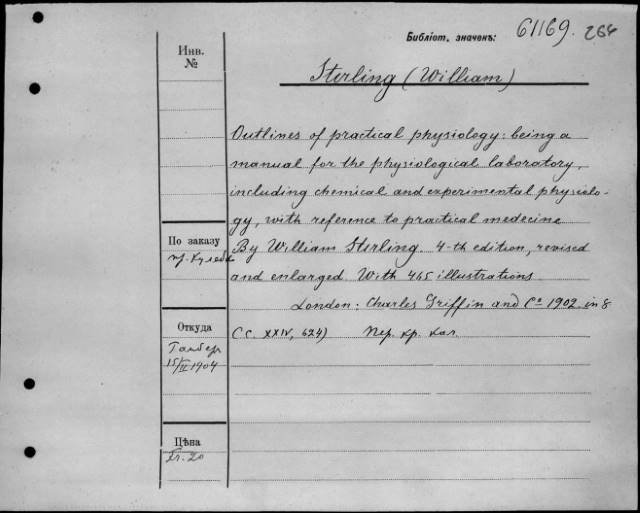 Библіот. значенъ: 61169. 264
Инв.
№
Sterling (William)
Outlines of practical physiology: being a
manual for the physiological laboratory,
including chemical and experimental physiolo-
gy, with reference to practical medecine
По заказу
By William Sterling. 4-th edition, revised
and enlarged. With 465 illustrations.
London: Charles Griffin and Cº 1902. in 8
Откуда
(С. XXIV, 624) Пер. кр. кал.
15/II 1904
Цѣна
Fr. 20